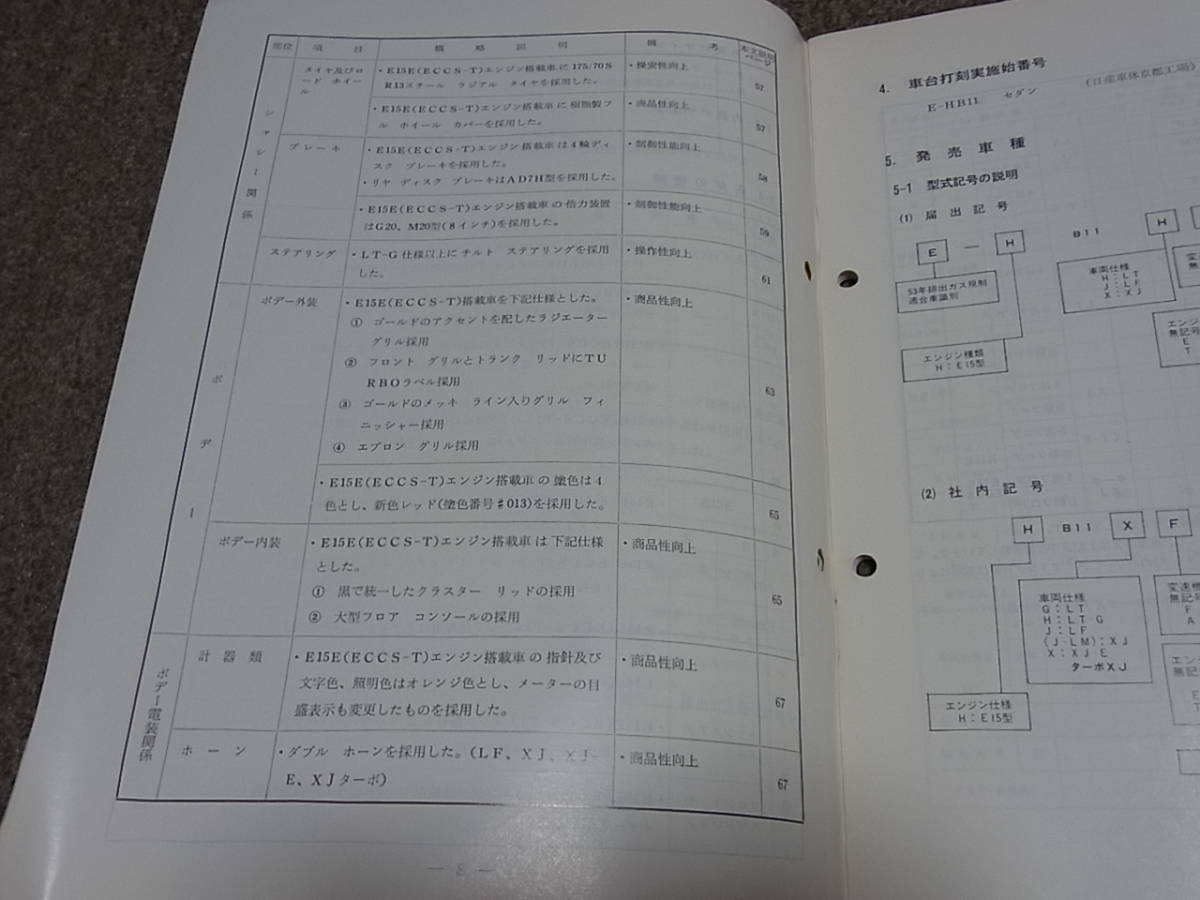 部位 項目 概略説明 備考 本文説明ページ
シャシー関係
タイヤ及びロード ホイール
・E15E(ECCS-T)エンジン搭載車に175/70S
R13スチール ラジアル タイヤを採用した。
・操安性向上
57
・E15E(ECCS-T)エンジン搭載車に樹脂製フ
ル ホイール カバーを採用した。
・商品性向上
57
ブレーキ
・E15E(ECCS-T)エンジン搭載車は4輪ディ
スク ブレーキを採用した。
・リヤ ディスク ブレーキはAD7H型を採用した。
・制動性能向上
58
・E15E(ECCS-T)エンジン搭載車の倍力装置
はG20、M20型(8インチ)を採用した。
・制動性能向上
59
ステアリング
・LT-G仕様以上にチルト ステアリングを採用
した。
・操作性向上
61
ボデー
ボデー外装
・E15E(ECCS-T)搭載車を下記仕様とした。
① ゴールドのアクセントを配したラジエーター
グリル採用
② フロント グリルとトランク リッドにTU
RBOラベル採用
③ ゴールドのメッキ ライン入りグリル フィ
ニッシャー採用
④ エプロン グリル採用
・商品性向上
63
・E15E(ECCS-T)エンジン搭載車の塗色は4
色とし、新色レッド(塗色番号#013)を採用した。
65
ボデー内装
・E15E(ECCS-T)エンジン搭載車は下記仕様
とした。
① 黒で統一したクラスター リッドの採用
② 大型フロア コンソールの採用
・商品性向上
65
ボデー電装関係
計器類
・E15E(ECCS-T)エンジン搭載車の指針及び
文字色、照明色はオレンジ色とし、メーターの目
盛表示も変更したものを採用した。
・商品性向上
67
ホーン
・ダブル ホーンを採用した。(LF、XJ、XJ-
E、XJターボ)
・商品性向上
67
— 8 —
4. 車台打刻実施始番号
E-HB11 セダン (日産車体京都工場)
5. 発売車種
5-1 型式記号の説明
(1) 届出記号
E — H B11 H
53年排出ガス規制
適合車識別
エンジン種類
H:E15型
車両仕様
H:LT
J:LF
X:XJ
変
無
エンジ
無記号
E
T
(2) 社内記号
H B11 X F
車両仕様
G:LT
H:LT G
J:LF
(J-LM):XJ
X:XJ E
ターボXJ
エンジン仕様
H:E15型
変速機
無記号
F
A
エンジ
無記